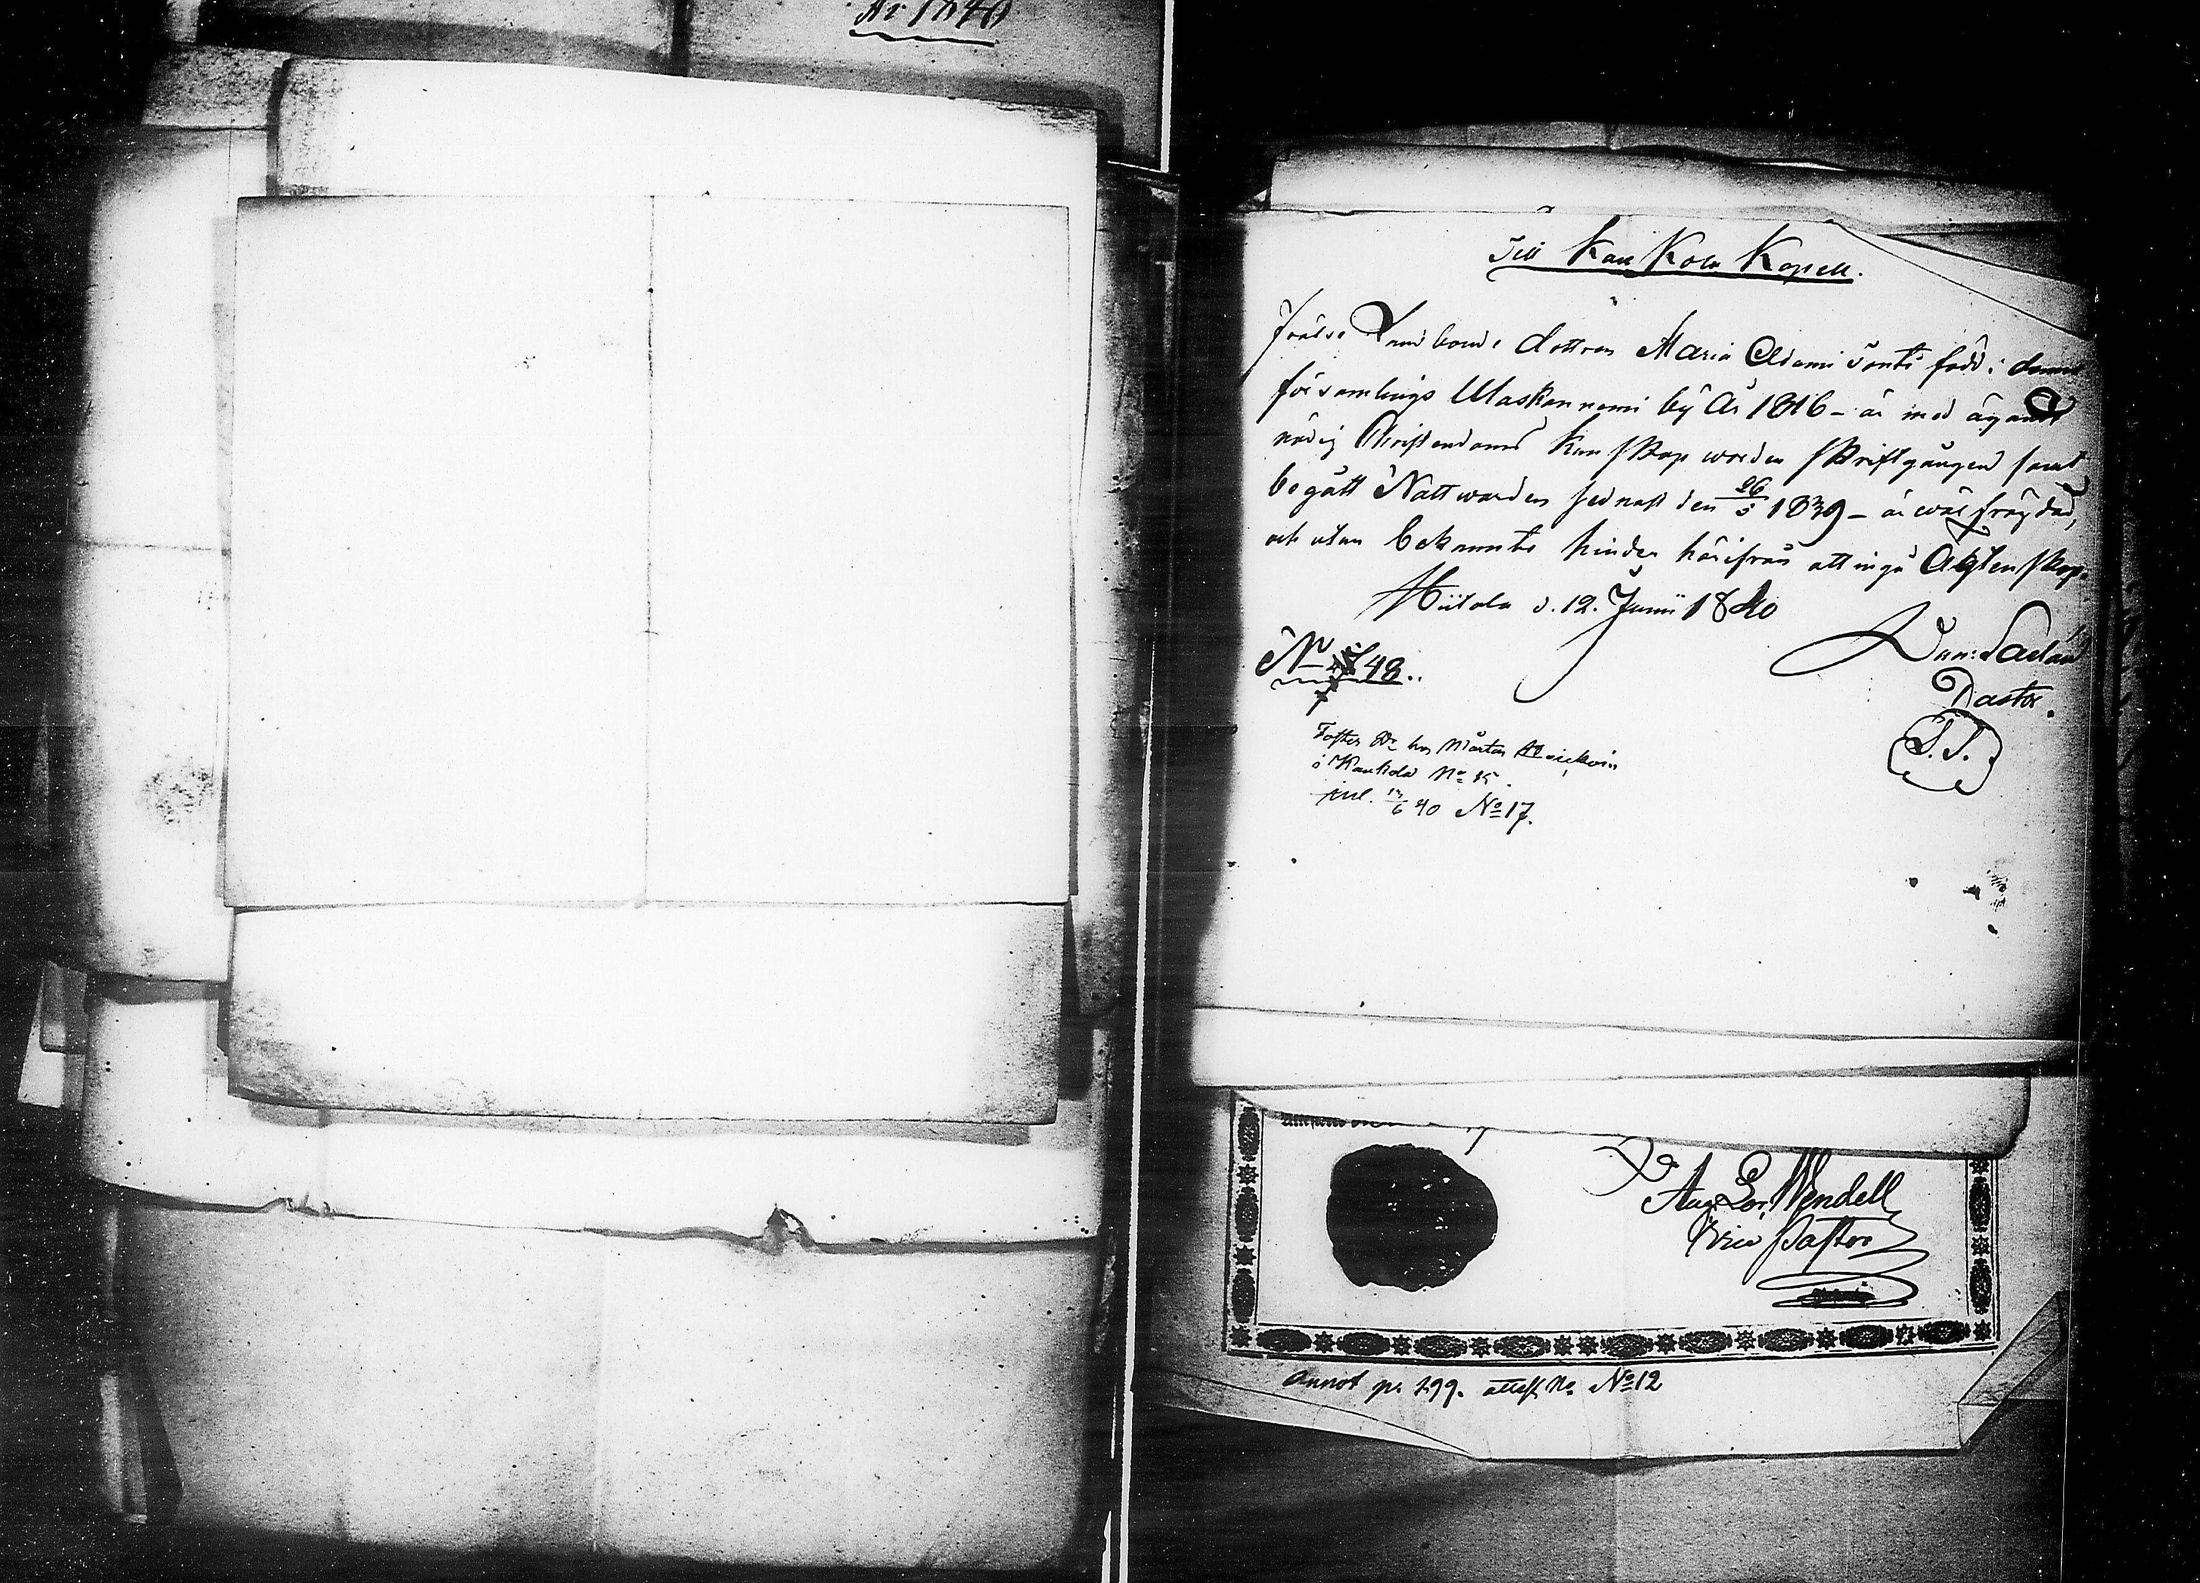 År 1840
Till Kaukola Kapell.
Frälse Landbonde dottren Maria Adami Sonti född i denna
församlings Uloskannemi by År 1816 – är med ägande
nödig Christendoms kunskap worden skriftgången samt
begått Nattwarden sednast den 26/5 1839 – är wälfrägdad,
och utan bekannta hinder härifrån att ingå Äktenskap.
Hiitola d. 12. Junii 1840
Pastor.
L.S.
N 48..
hos Mårten
i Kaukola No 15.
inl. 13/6 40 No 17.
Aug. Lor. Wendell
Vice Pastor
Annot p. 299. attest No No 12